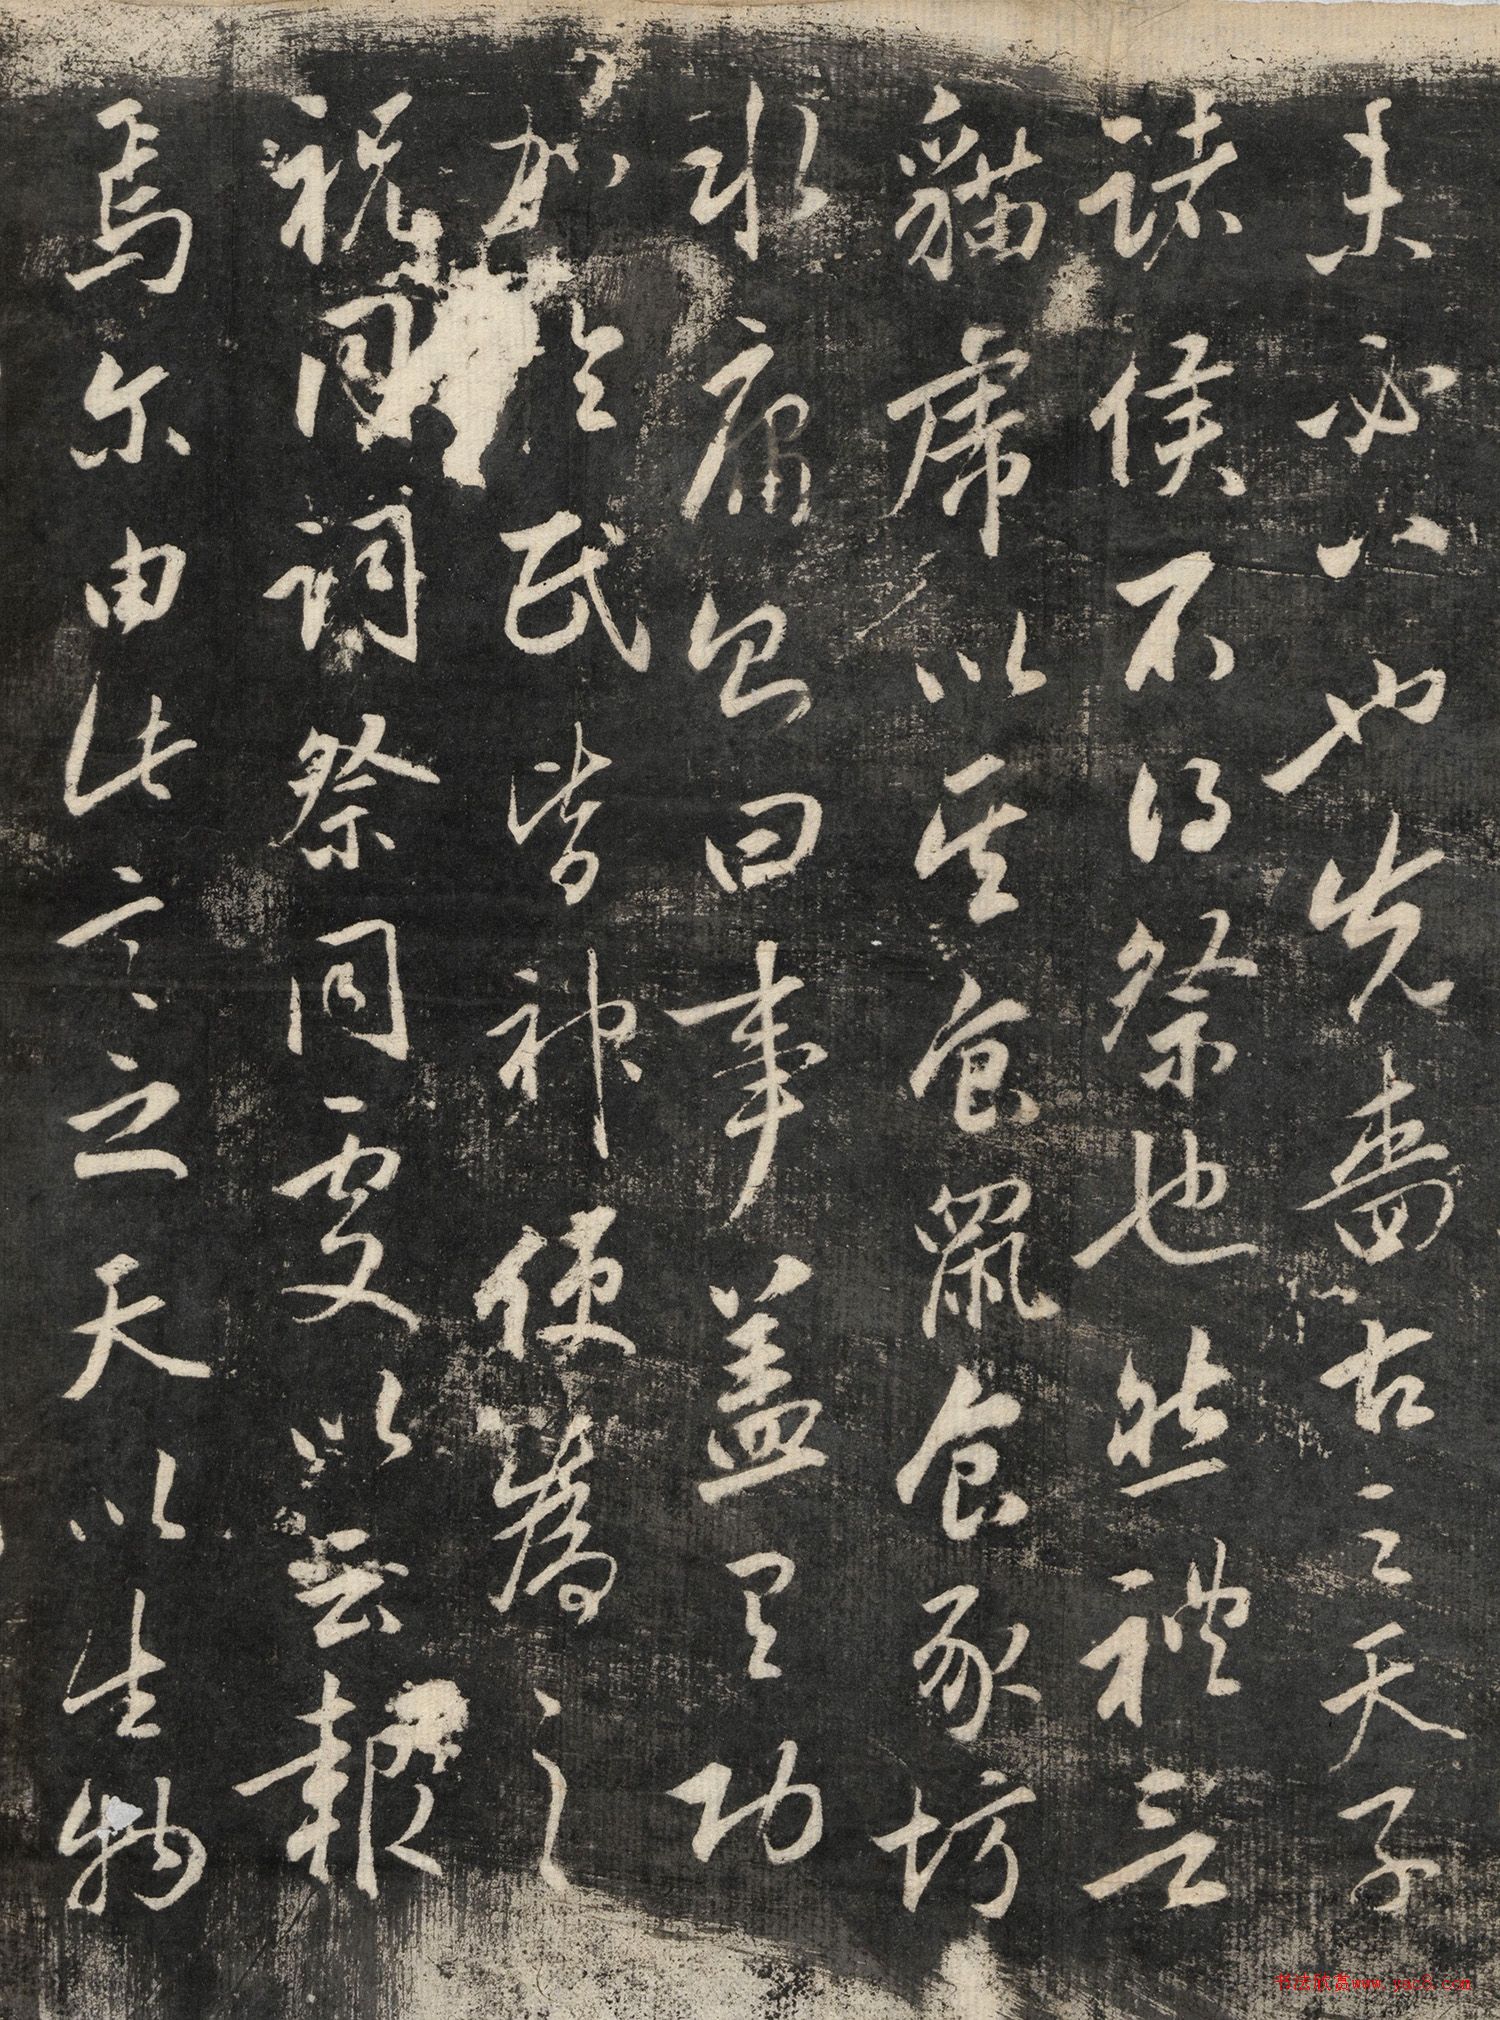 未必八也先嗇古之天子
諸侯不得祭也然禮言
貓虎以其食鼠食豕坊
水庸則曰事蓋有功
加於民皆神使為之
祝同詞祭同受以云報
焉尔由此言之天以生物